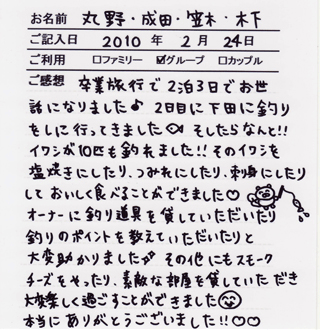 お名前 丸野・成田・笹木・木下
ご記入日 2010 年 2 月 24 日
ご利用 □ファミリー ☑グループ □カップル
ご感想 卒業旅行で2泊3日でお世
話になりました♪ 2日目に下田に釣り
をしに行ってきました そしたらなんと!!
イワシが10匹も釣れました!! そのイワシを
塩焼きにしたり、つみれにしたり、刺身にしたり
して おいしく食べることができました♡
オーナーに釣り道具を貸していただいたり
釣りのポイントを教えていただいたりと
大変助かりました その他にもスモーク
チーズをもったり、素敵な部屋を貸していただき
大変楽しく過ごすことができました
本当にありがとうございました!!♡♡